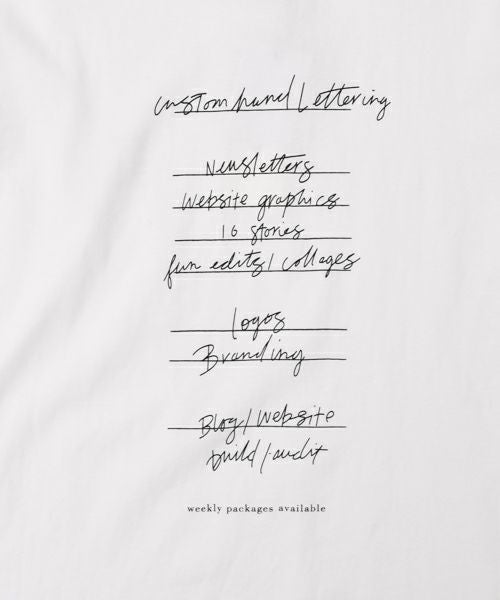 custom hand lettering
Newsletters
Website graphics
IG stories
fun edits / collages
logos
Branding
Blog / Website
build / audit
weekly packages available